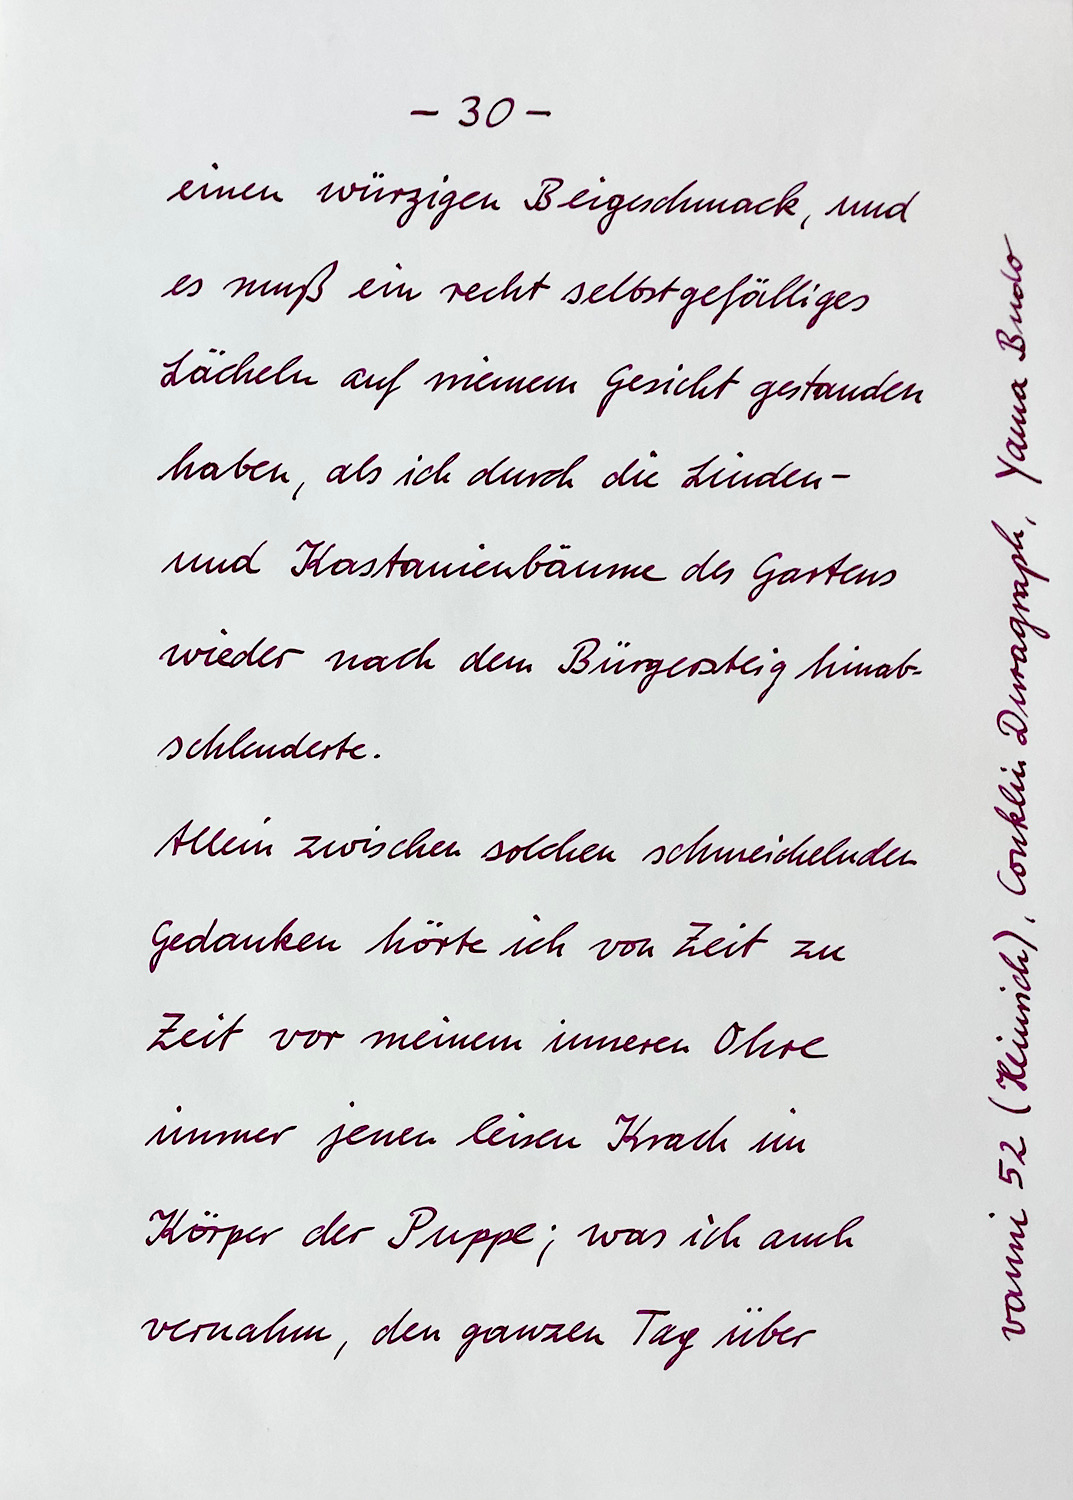 - 30 -
einen würzigen Beigeschmack, und
es muß ein recht selbstgefälliges
Lächeln auf meinem Gesicht gestanden
haben, als ich durch die Linden-
und Kastanienbäume des Gartens
wieder nach dem Bürgersteig hinab-
schlenderte.
Allein zwischen solchen schmeichelnden
Gedanken hörte ich von Zeit zu
Zeit vor meinem inneren Ohre
immer jenen leisen Krach im
Körper der Puppe; was ich auch
vernahm, den ganzen Tag über
vanni 52 (Heinrich), Conklin Duragraph, Yama Budo